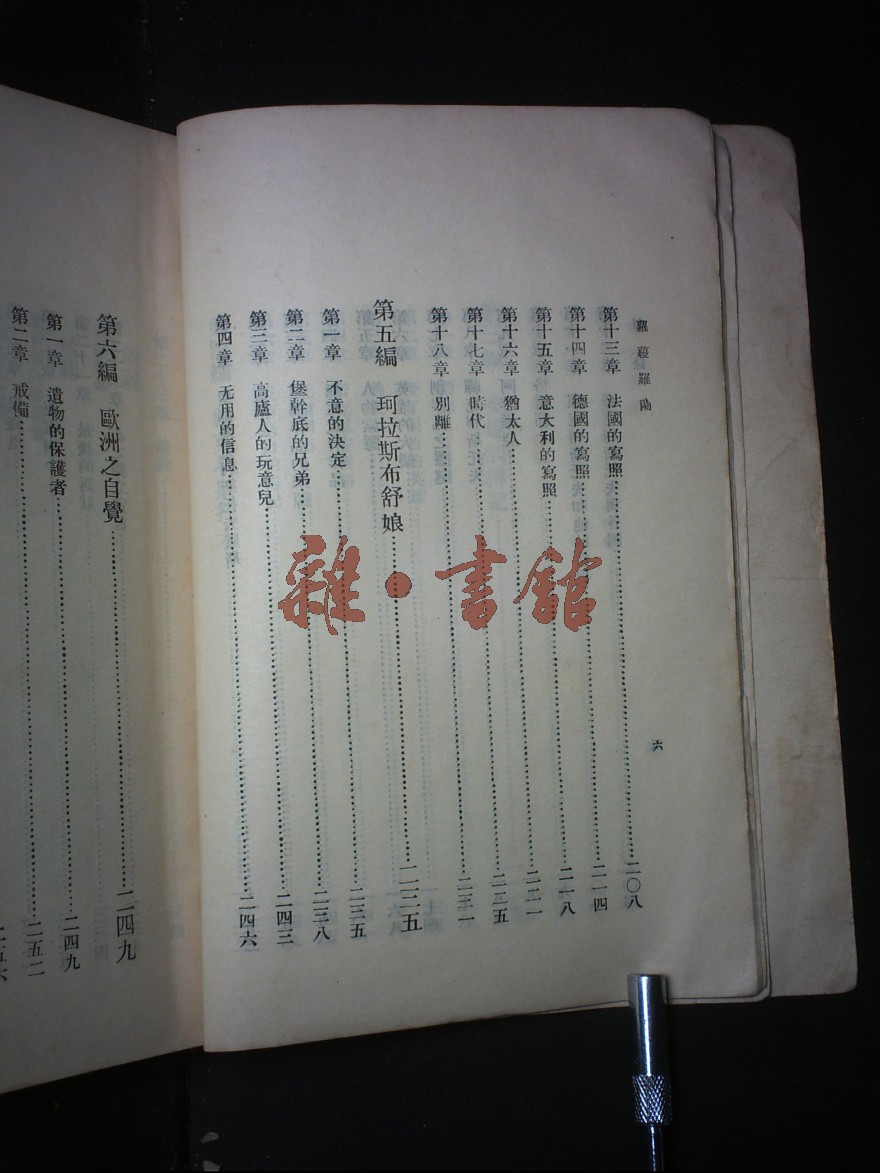 羅蔓羅
第十三章 法國的寫照……二〇八
第十四章 德國的寫照……二一四
第十五章 意大利的寫照……二一八
第十六章 猶太人……二二一
第十七章 時代……二二五
第十八章 別離……二三一
第五編 珂拉斯布舒娘……二三五
第一章 不意的決定……二三五
第二章 堡幹底的兄弟……二三八
第三章 高廬人的玩意兒……二四三
第四章 无用的信息……二四六
六
第六編 歐洲之自覺……二四九
第一章 遺物的保護者……二四九
第二章 戒備……二五二
二五六
雜·書館